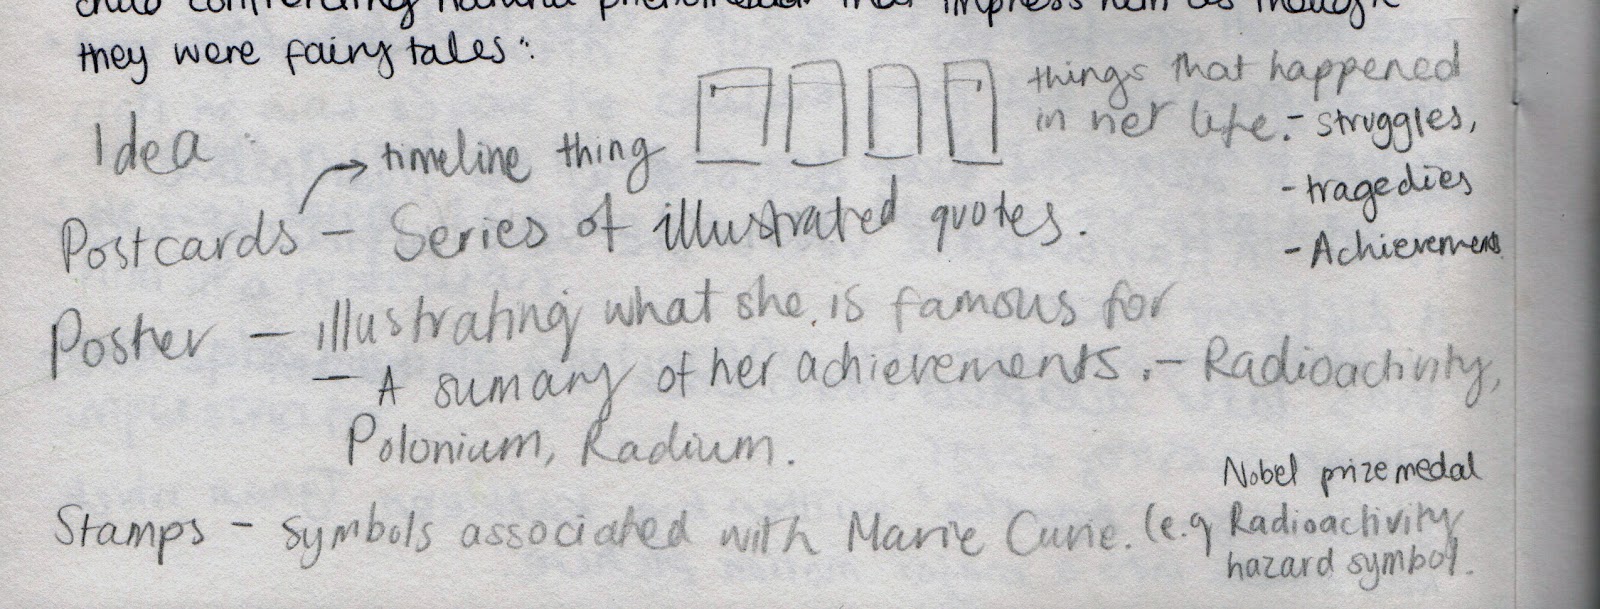 child confronting natural phenomena that impress him as though
they were fairy tales".
Idea :
timeline thing
things that happened
in her life. - struggles,
- tragedies
- Achievements
Postcards - Series of illustrated quotes.
Poster - illustrating what she is famous for
- A sumary of her achievements. - Radioactivity,
Polonium, Radium.
Stamps - Symbols associated with Marie Curie. (e.g
Nobel prize medal
Radioactivity
hazard symbol.